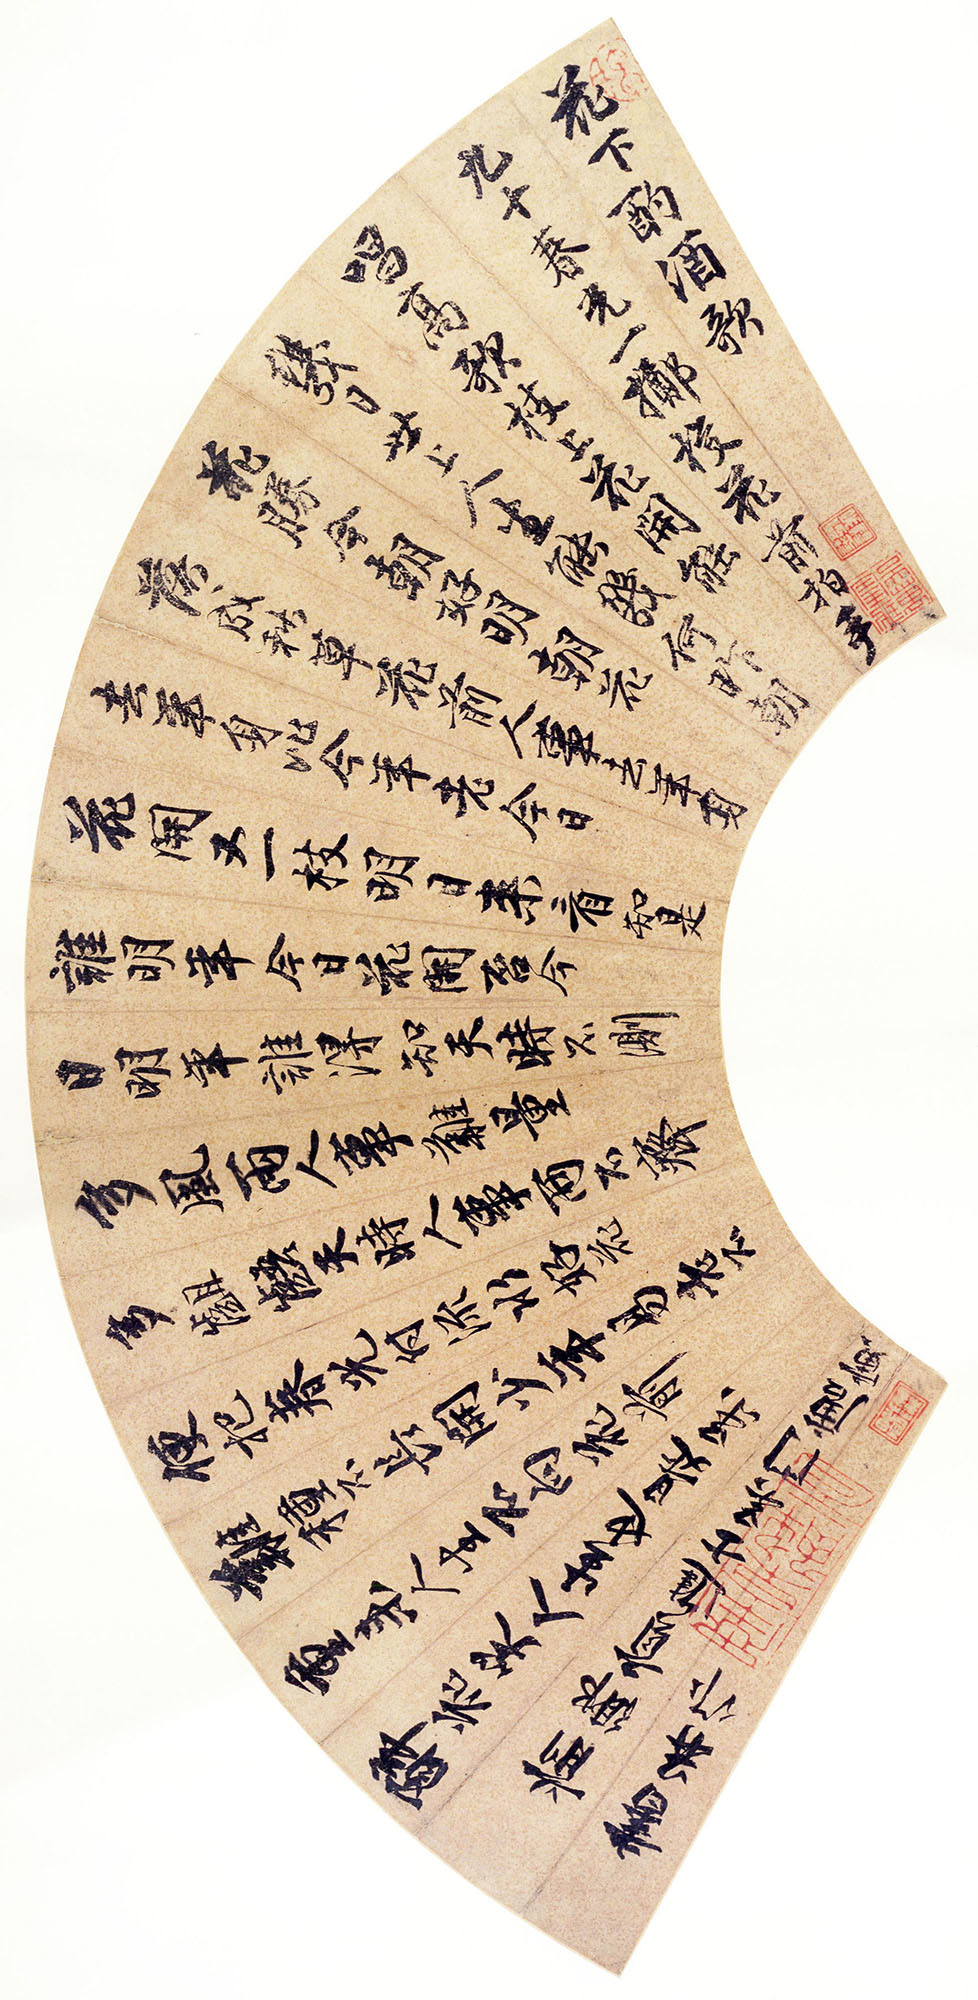 花下酌酒歌
九十春光一擲梭花前拍手
唱高歌枝上花開能
幾日世上人生能幾何昨朝
花勝今朝好明朝花
落成秋草花前人事去年身
去年身比今年老今日
花開又一枝明日來看知是
誰明年今日花開否今
日明年誰得知天時不測
多風雨人事難量
多齟齬天時人事兩不齊
便把春光付流水好花
難種不長開少年易老不
重來人生不向花前
醉花笑人生也是呆